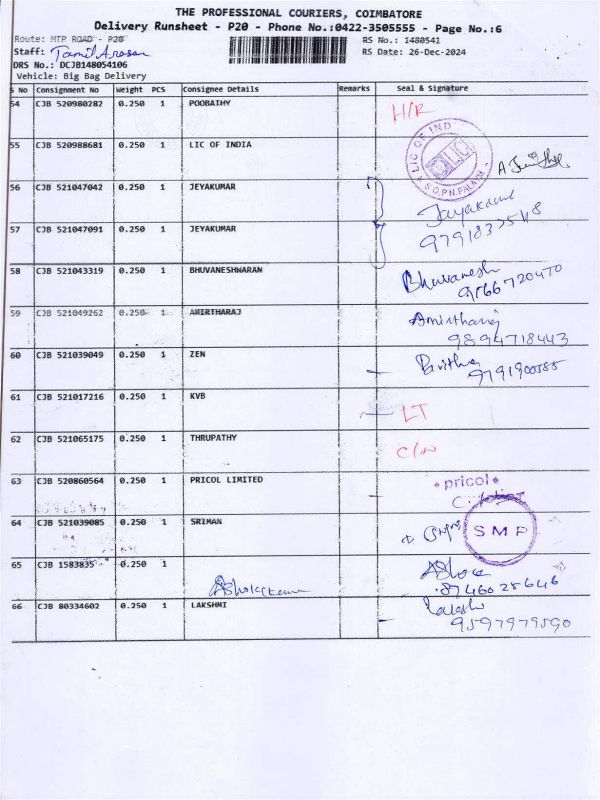 THE PROFESSIONAL COURIERS, COIMBATORE
Delivery Runsheet - P20 - Phone No.:0422-3505555 - Page No.:6
Route: MTP ROAD - P20 RS No.: 1480541
Staff: Tamil Arasan RS Date: 26-Dec-2024
DRS No.: DCJB148054106
Vehicle: Big Bag Delivery
S No Consignment No Weight PCS Consignee Details Remarks Seal & Signature
54 CJB 520980282 0.250 1 POOBATHY H/R
55 CJB 520988681 0.250 1 LIC OF INDIA LIC OF IND LIC S.O,P.N.PALAYAM
56 CJB 521047042 0.250 1 JEYAKUMAR Jayakumar
57 CJB 521047091 0.250 1 JEYAKUMAR
58 CJB 521043319 0.250 1 BHUVANESHWARAN Bhuvanesh
9566720470
59 CJB 521049262 0.250 1 AMIRTHARAJ Amirtharaj
9894718443
60 CJB 521039049 0.250 1 ZEN Pavithra
61 CJB 521017216 0.250 1 KVB LT
62 CJB 521065175 0.250 1 THRUPATHY C/N
63 CJB 520860564 0.250 1 PRICOL LIMITED pricol
64 CJB 521039085 0.250 1 SRIMAN SMP
65 CJB 1583835 0.250 1 Ashokkumar Ashok
8746025646
66 CJB 80334602 0.250 1 LAKSHMI
9597979590